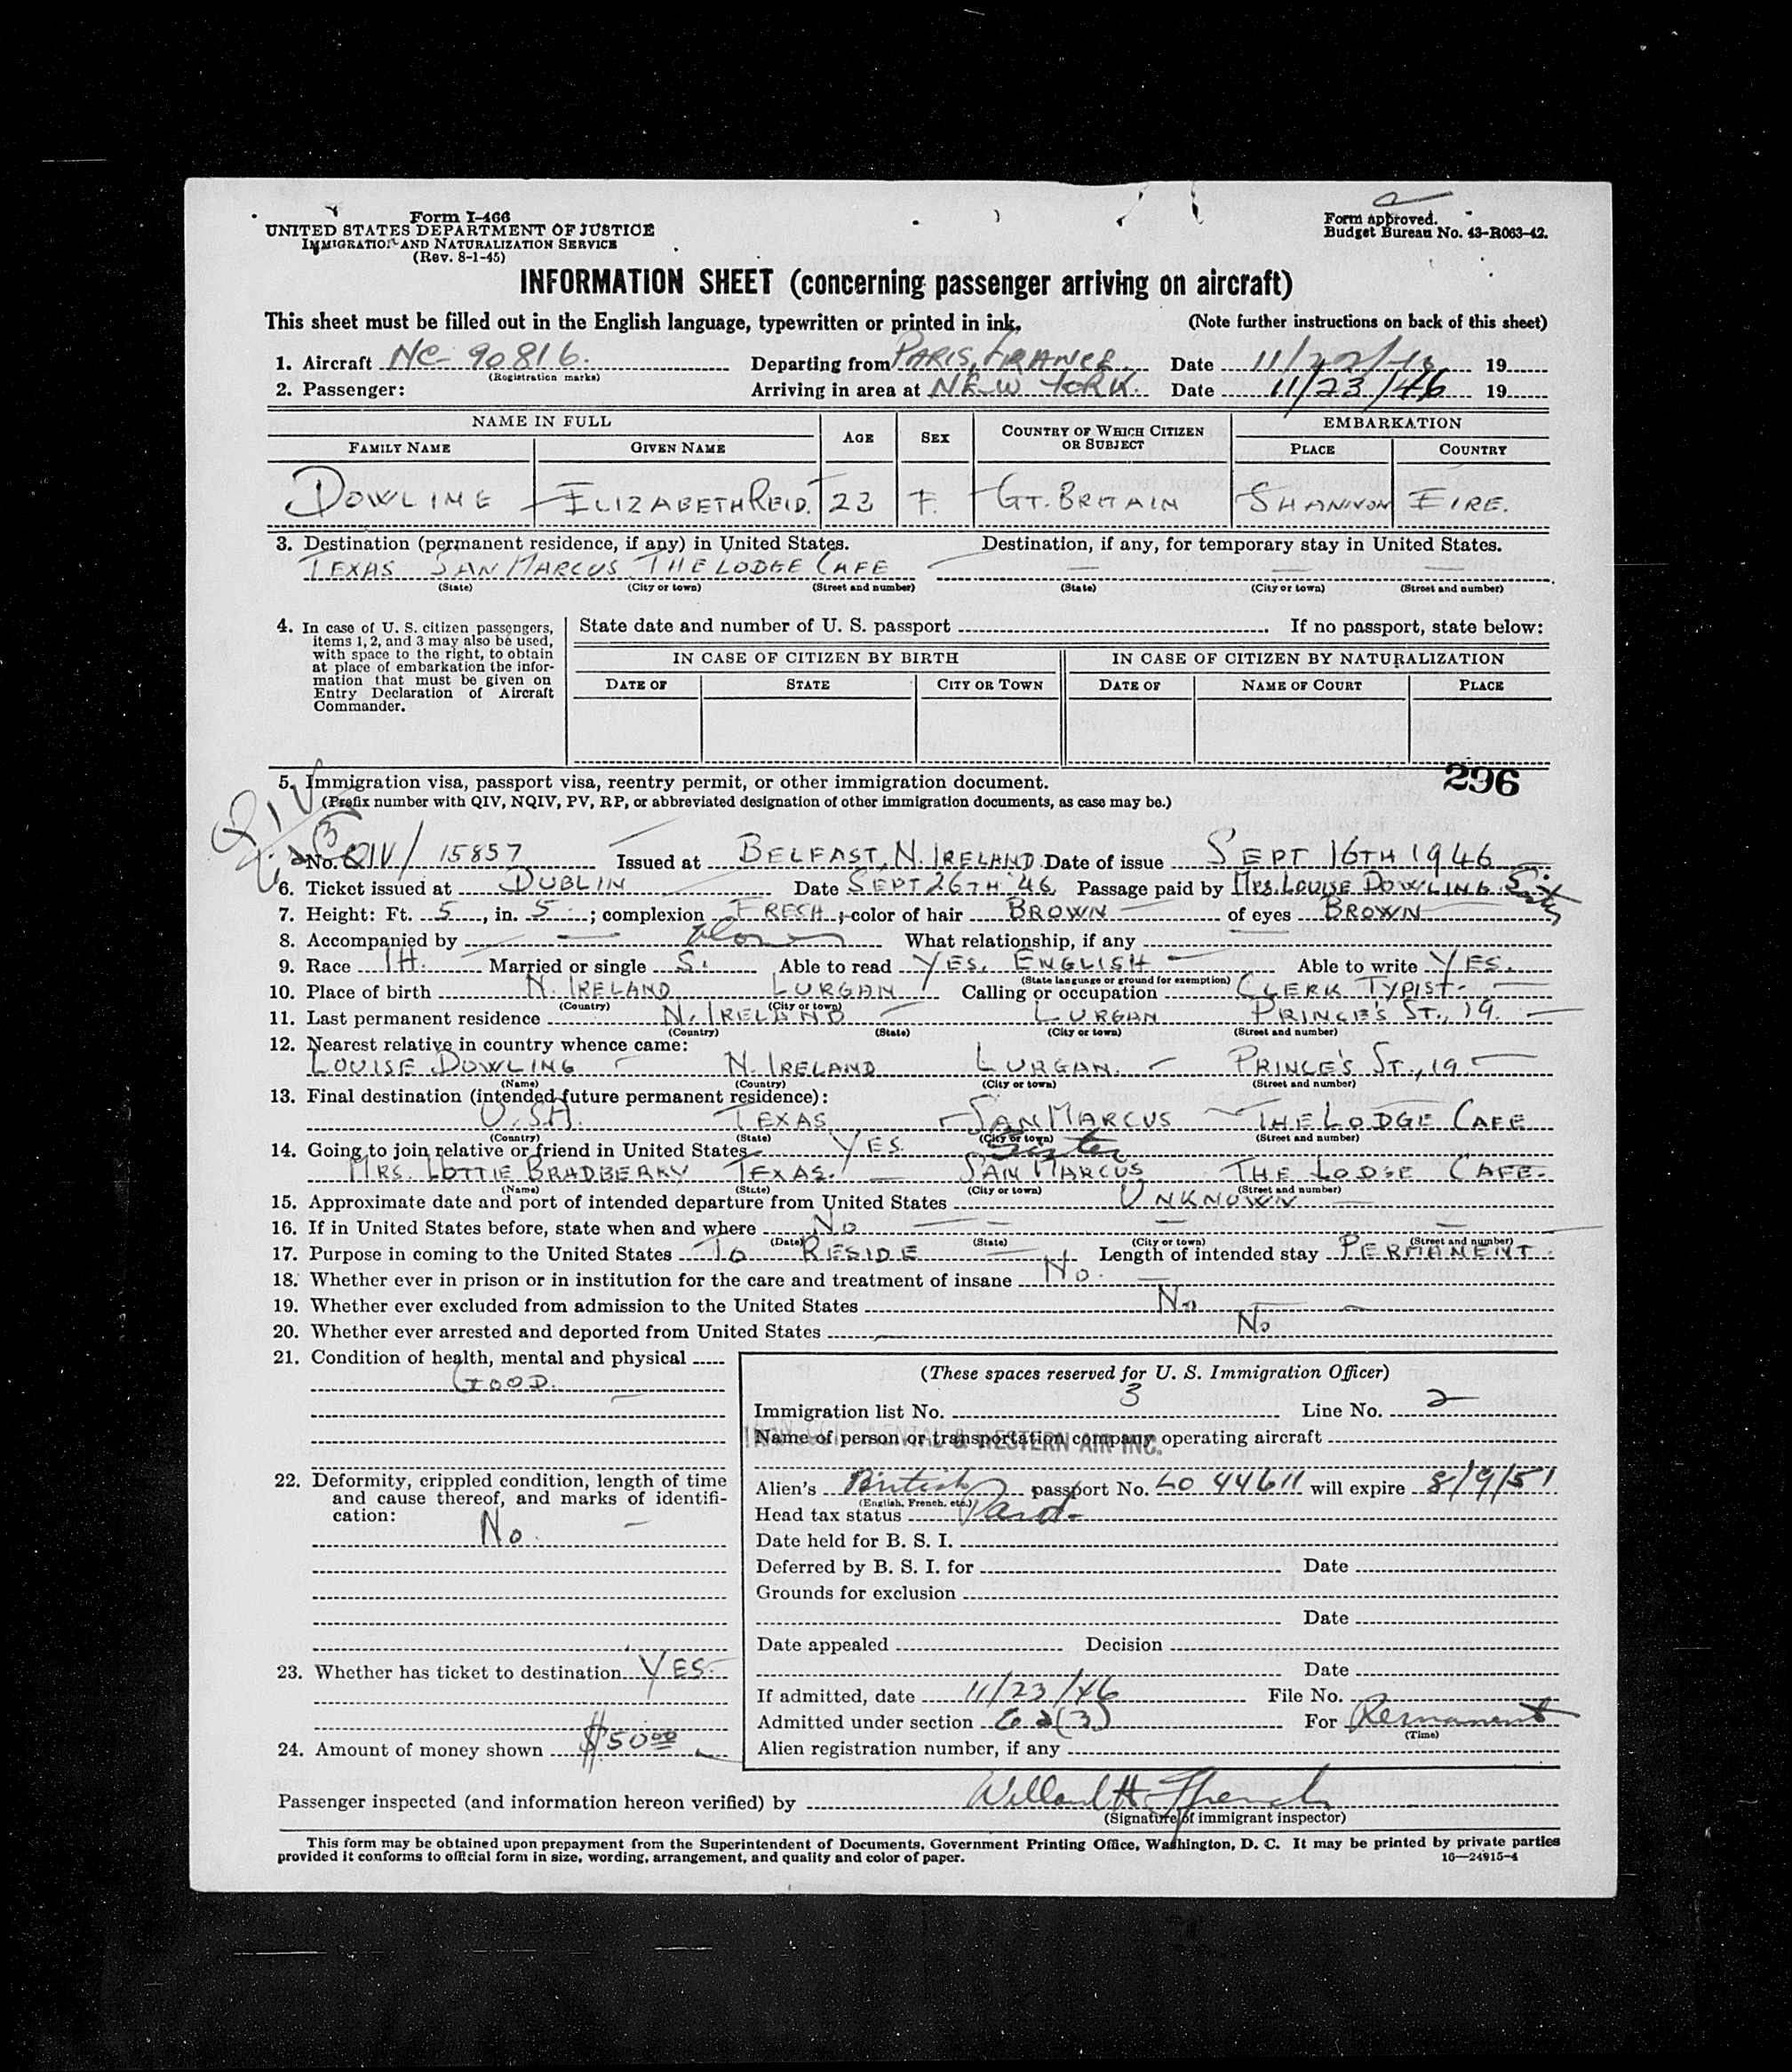 Form I-466
UNITED STATES DEPARTMENT OF JUSTICE
IMMIGRATION AND NATURALIZATION SERVICE
(Rev. 8-1-45)
Form approved.
Budget Bureau No. 43-R063-42.
INFORMATION SHEET (concerning passenger arriving on aircraft)
This sheet must be filled out in the English language, typewritten or printed in ink. (Note further instructions on back of this sheet)
1. Aircraft NC-90816. Departing from PARIS, FRANCE Date 11/22/46 19
(Registration marks)
2. Passenger: Arriving in area at NEW YORK. Date 11/23/46 19
NAME IN FULL AGE SEX COUNTRY OF WHICH CITIZEN OR SUBJECT EMBARKATION
FAMILY NAME GIVEN NAME PLACE COUNTRY
DOWLING ELIZABETH REID. 23 F. GT. BRITAIN SHANNON EIRE.
3. Destination (permanent residence, if any) in United States. Destination, if any, for temporary stay in United States.
TEXAS SAN MARCUS THE LODGE CAFE — — —
(State) (City or town) (Street and number) (State) (City or town) (Street and number)
4. In case of U. S. citizen passengers, items 1, 2, and 3 may also be used, with space to the right, to obtain at place of embarkation the information that must be given on Entry Declaration of Aircraft Commander.
State date and number of U. S. passport If no passport, state below:
IN CASE OF CITIZEN BY BIRTH IN CASE OF CITIZEN BY NATURALIZATION
DATE OF STATE CITY OR TOWN DATE OF NAME OF COURT PLACE
296
5. Immigration visa, passport visa, reentry permit, or other immigration document.
(Prefix number with QIV, NQIV, PV, RP, or abbreviated designation of other immigration documents, as case may be.)
QIV
No. QIV/ 15857 Issued at BELFAST, N. IRELAND Date of issue SEPT 16TH 1946
6. Ticket issued at DUBLIN Date SEPT 26TH '46 Passage paid by MRS. LOUISE DOWLING
7. Height: Ft. 5, in. 5; complexion FRESH; color of hair BROWN of eyes BROWN
8. Accompanied by — alone What relationship, if any
9. Race IH. Married or single S. Able to read YES, ENGLISH Able to write YES.
(State language or ground for exemption)
10. Place of birth N. IRELAND LURGAN Calling or occupation CLERK TYPIST.
(Country) (City or town)
11. Last permanent residence N. IRELAND LURGAN PRINCE'S ST., 19.
(Country) (State) (City or town) (Street and number)
12. Nearest relative in country whence came:
LOUISE DOWLING N. IRELAND LURGAN PRINCE'S ST., 19
(Name) (Country) (City or town) (Street and number)
13. Final destination (intended future permanent residence):
U.S.A. TEXAS SAN MARCUS THE LODGE CAFE
(Country) (State) (City or town) (Street and number)
14. Going to join relative or friend in United States YES. Sister
MRS. LOTTIE BRADBERRY TEXAS. SAN MARCUS THE LODGE CAFE.
(Name) (State) (City or town) (Street and number)
15. Approximate date and port of intended departure from United States UNKNOWN
16. If in United States before, state when and where NO
(Date) (State) (City or town) (Street and number)
17. Purpose in coming to the United States TO RESIDE Length of intended stay PERMANENT.
18. Whether ever in prison or in institution for the care and treatment of insane NO.
19. Whether ever excluded from admission to the United States NO
20. Whether ever arrested and deported from United States NO
21. Condition of health, mental and physical
GOOD.
22. Deformity, crippled condition, length of time and cause thereof, and marks of identification:
NO.
23. Whether has ticket to destination YES.
24. Amount of money shown $50 00
(These spaces reserved for U. S. Immigration Officer)
Immigration list No. 3 Line No. 2
Name of person or transportation company operating aircraft
& WESTERN AIR INC.
Alien's British passport No. LO 44611 will expire 8/9/51
(English, French, etc.)
Head tax status Paid
Date held for B. S. I.
Deferred by B. S. I. for Date
Grounds for exclusion
Date
Date appealed Decision
Date
If admitted, date 11/23/46 File No.
Admitted under section 6a(3) For Permanent
(Time)
Alien registration number, if any
Passenger inspected (and information hereon verified) by Willard H. French
(Signature of immigrant inspector)
This form may be obtained upon prepayment from the Superintendent of Documents, Government Printing Office, Washington, D. C. It may be printed by private parties
provided it conforms to official form in size, wording, arrangement, and quality and color of paper. 16—24915-4